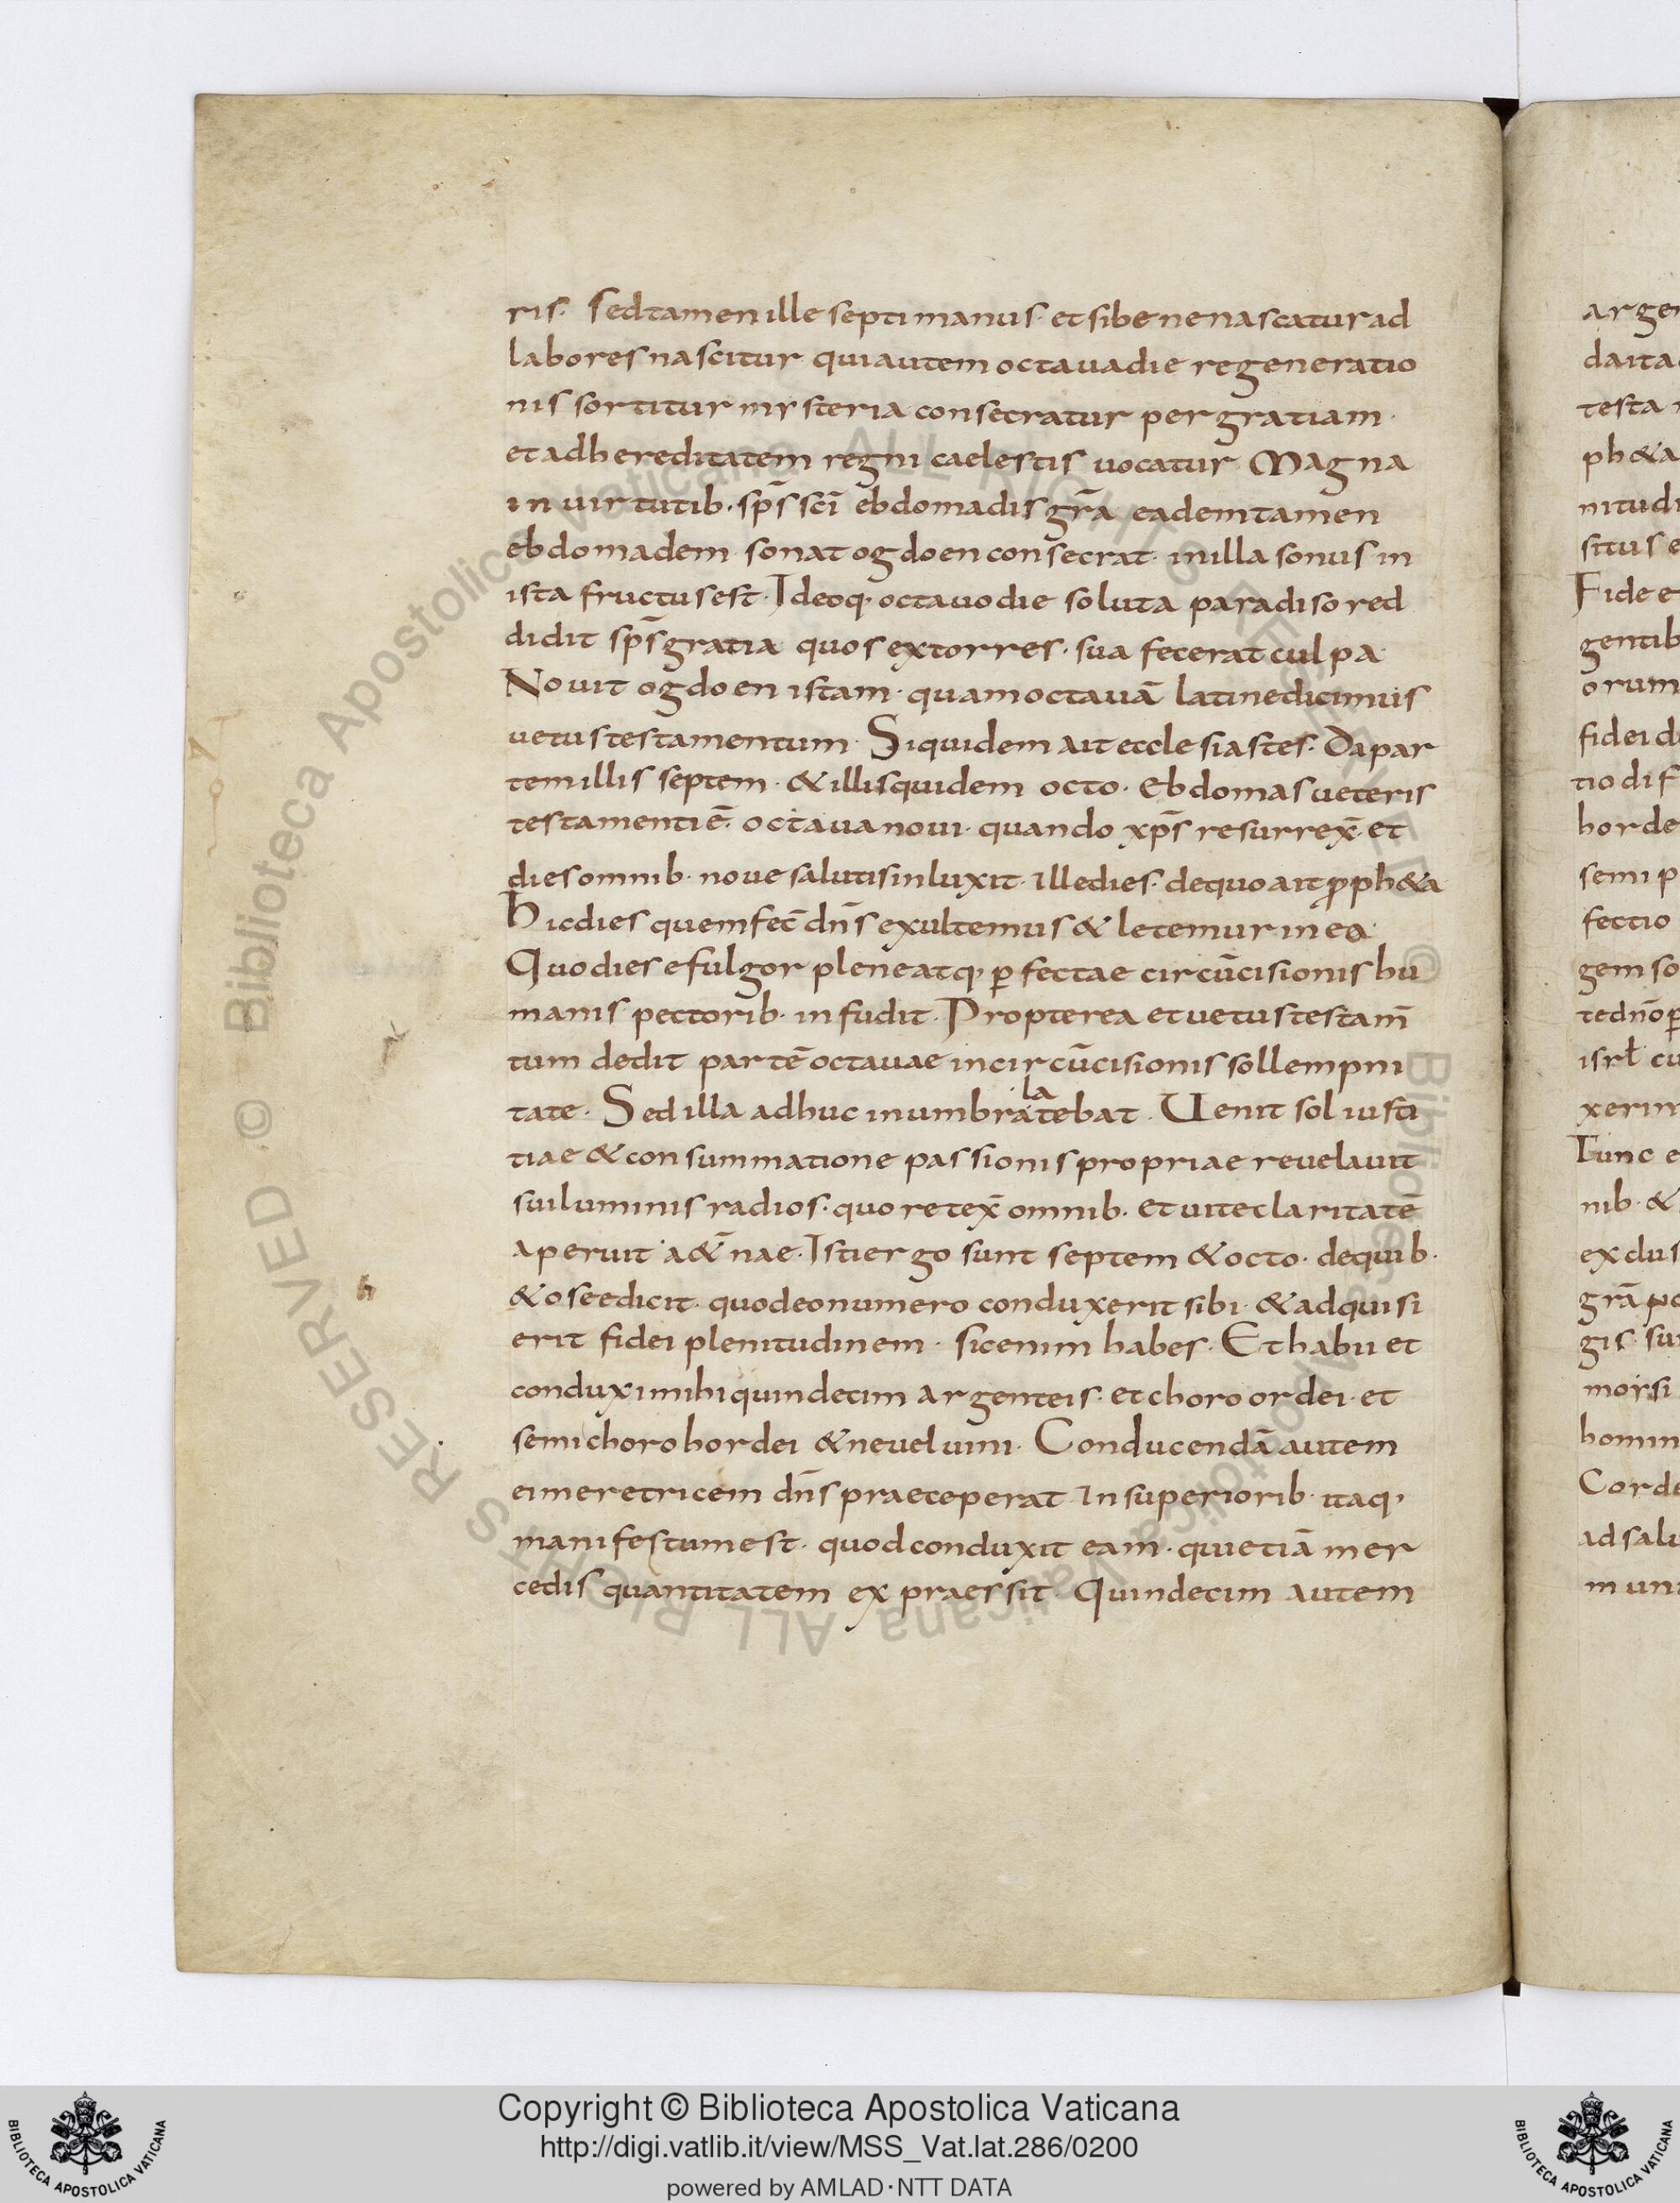 ris. Sed tamen ille septimanus. et si bene nascatur ad
labores nascitur. qui autem octaua die regeneratio
nis sortitur mysteria consecratur per gratiam.
et ad hereditatem regni caelestis uocatur. Magna
in uirtutib. sp̄s sc̄i ebdomadis gr̄a eadem tamen
ebdomadem sonat ogdoen consecrat. in illa sonus in
ista fructus est. Ideoq. octauo die soluta paradiso red
didit sp̄s gratia quos extorres. sua fecerat culpa
Nouit ogdoen istam. quam octauā latine dicimus
uetus testamentum. Siquidem ait ecclesiastes. Da par
tem illis septem. & illis quidem octo. Ebdomas ueteris
testamenti ē. octaua noui. quando xp̄s resurrex̄ et
dies omnib. noue salutis inluxit. ille dies. de quo ait ꝓph&a
Hic dies quem fec̄ dn̄s exultemus & letemur in ea.
Quo die se fulgor plene atq. ꝑfectae circūcisionis hu
manis pectorib. infudit. Propterea et uetus testam̄
tum dedit partē octauae in circūcisionis sollempni
tate. Sed illa adhuc in umbra latebat. Uenit sol iusti
tiae & consummatione passionis propriae reuelauit
sui luminis radios. quo retex̄ omnib. et uite claritatē
aperuit a&̄nae. Isti ergo sunt septem & octo. de quib.
& osee dicit. quod eo numero conduxerit sibi. & adquisi
erit fidei plenitudinem. sic enim habes. Et habii et
conduxi mihi quindecim argenteis. et choro ordei. et
semichoro hordei & neuel uini. Conducendā autem
ei meretricem dn̄s praeceperat in superiorib. itaq.
manifestum est. quod conduxit eam. qui etiā mer
cedis quantitatem expraessit. Quindecim autem
Copyright © Biblioteca Apostolica Vaticana
http://digi.vatlib.it/view/MSS_Vat.lat.286/0200
powered by AMLAD·NTT DATA